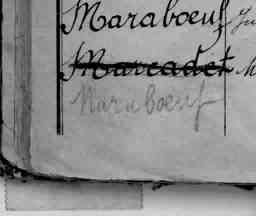 Maraboeuf
Marcadet M
Maraboeuf